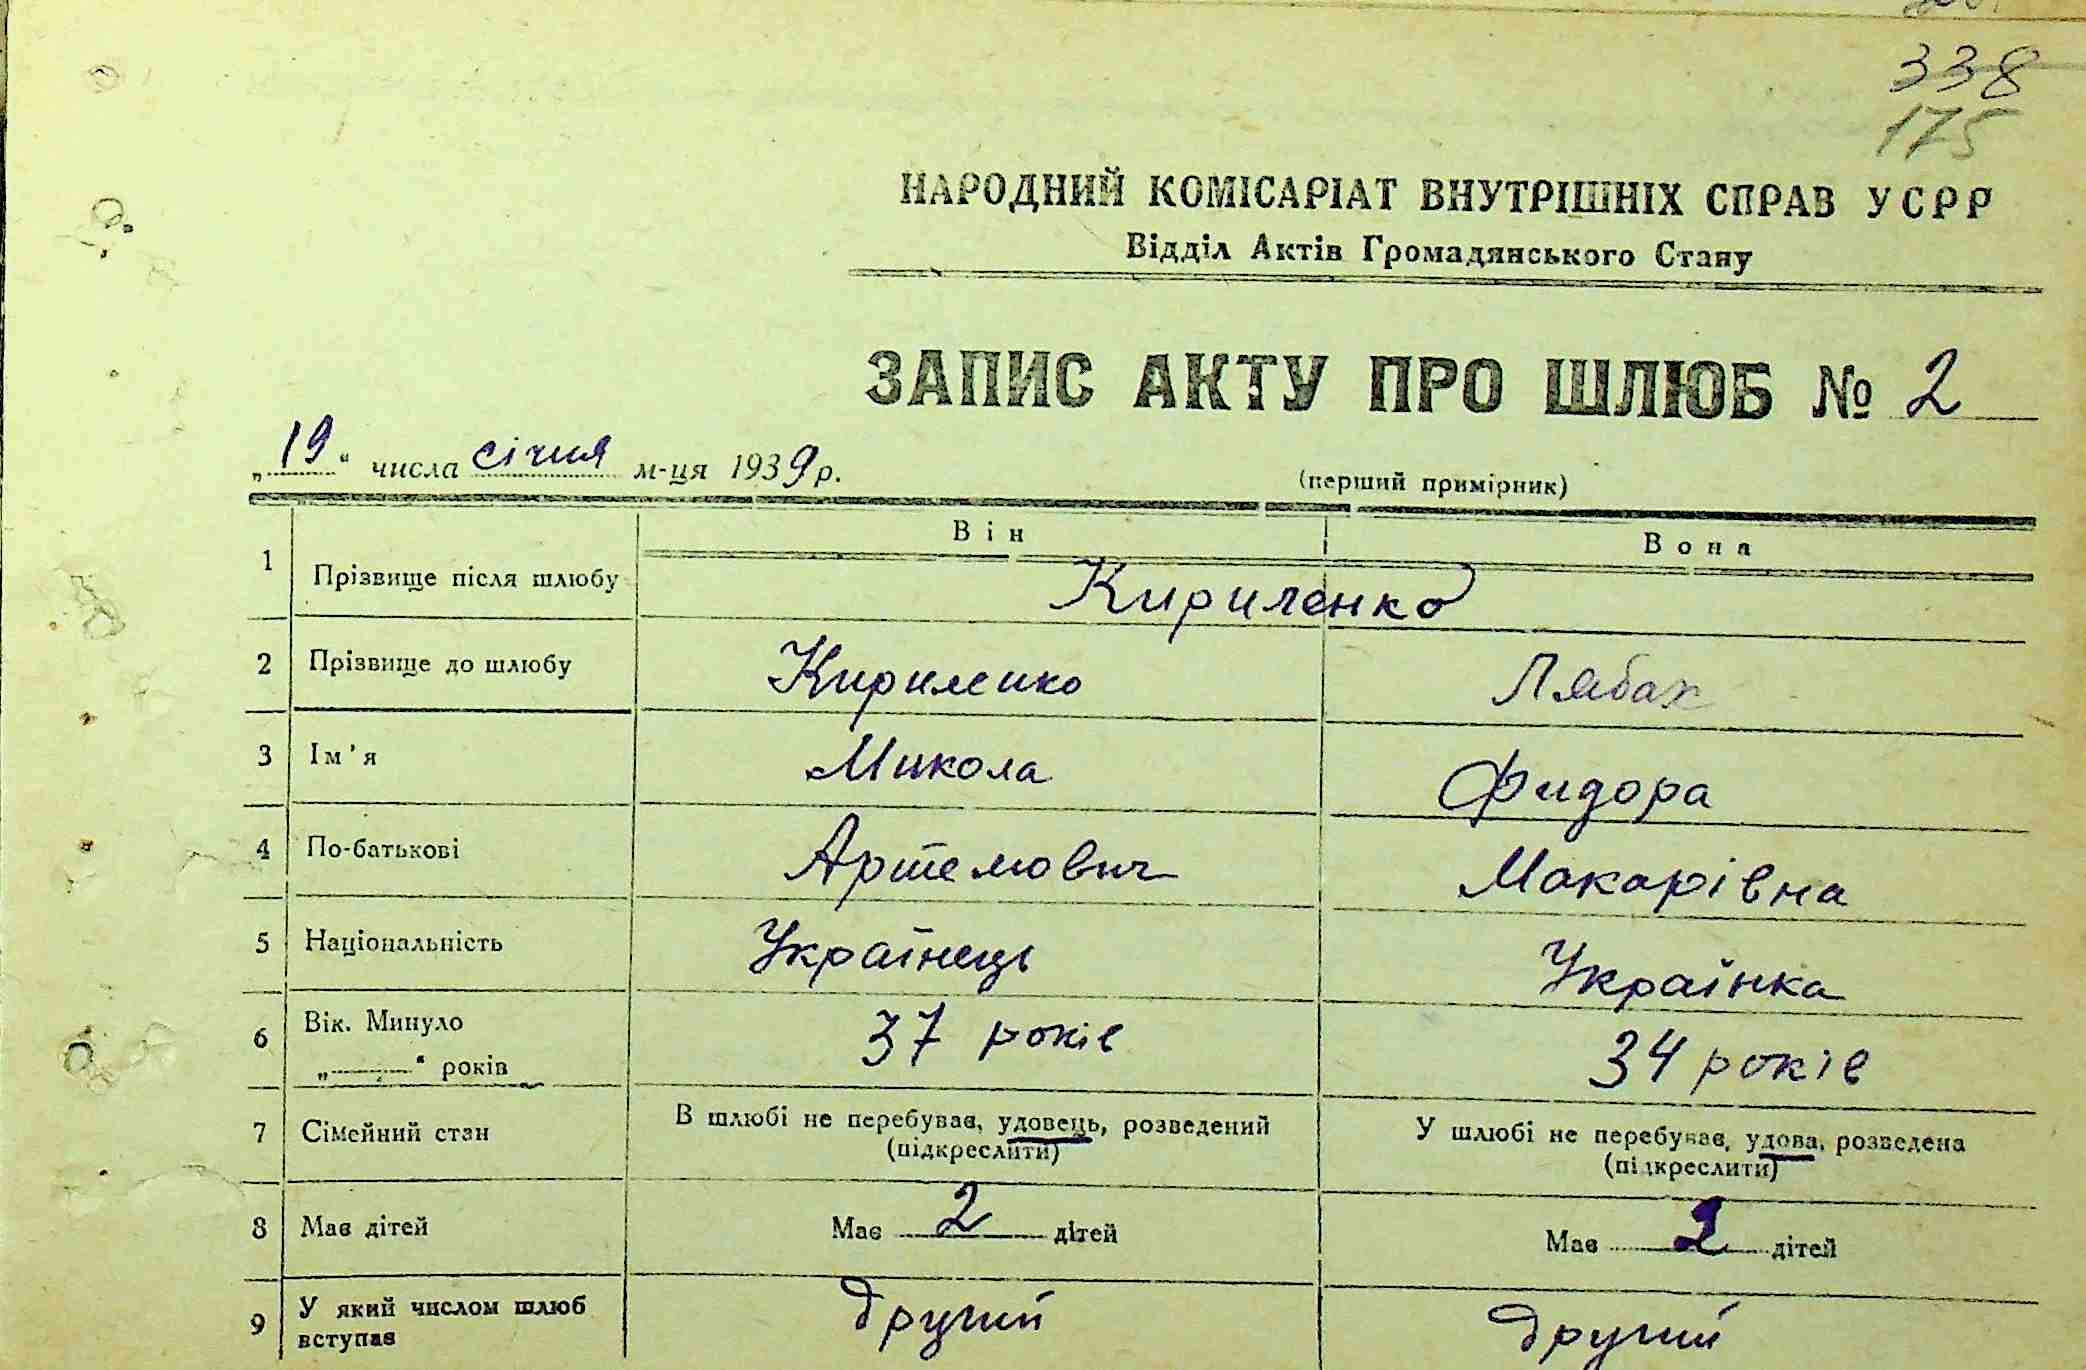 338
175
НАРОДНИЙ КОМІСАРІАТ ВНУТРІШНІХ СПРАВ УСРР
Відділ Актів Громадянського Стану
ЗАПИС АКТУ ПРО ШЛЮБ № 2
„19“ числа січня м-ця 1939 р.
(перший примірник)
Він Вона
1 Прізвище після шлюбу Кириленко
2 Прізвище до шлюбу Кириленко Лябах
3 Ім'я Микола Фидора
4 По-батькові Артемович Макарівна
5 Національність Українець Українка
6 Вік. Минуло 37 років 34 років
„ “ років
7 Сімейний стан В шлюбі не перебував, удовець, розведений У шлюбі не перебував, удова, розведена
(підкреслити) (підкреслити)
8 Має дітей Має 2 дітей Має 2 дітей
9 У який числом шлюб другий другий
вступає